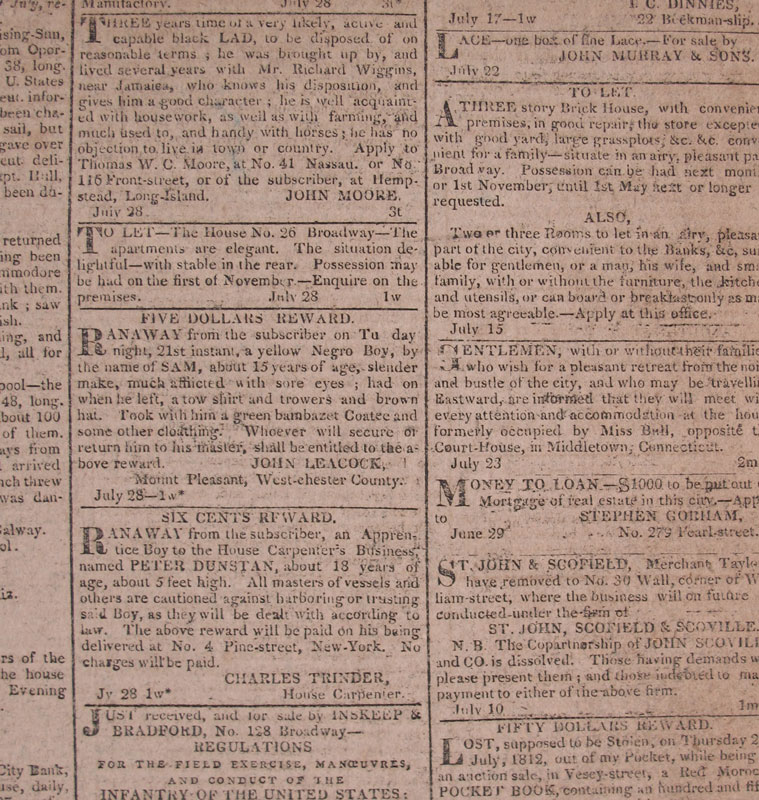 July, re-
ising-Sun,
om Opor-
38, long.
U. States
eut. infor-
been cha-
sail, but
gave over
cut deli-
pt. Hull,
been du-
returned
ing been
mmodore
ith them.
nk ; saw
ish.
ing, and
d, all for
pool—the
48, long.
bout 100
of them.
ays from
arrived
nch threw
was dan-
Galway.
ol.
ia.
rs of the
he house
Evening
City Bank,
use, daily,
Manufactory. July 28 3t*
THREE years time of a very likely, active and
capable black LAD, to be disposed of on
reasonable terms ; he was brought up by, and
lived several years with Mr. Richard Wiggins,
near Jamaica, who knows his disposition, and
gives him a good character ; he is well acquaint-
ed with housework, as well as with farming, and
much used to, and handy with horses ; he has no
objection to live in town or country. Apply to
Thomas W. C. Moore, at No. 41 Nassau. or No.
116 Front-street, or of the subscriber, at Hemp-
stead, Long-Island. JOHN MOORE.
July 28 3t
TO LET—The House No. 26 Broadway—The
apartments are elegant. The situation de-
lightful—with stable in the rear. Possession may
be had on the first of November.—Enquire on the
premises. July 28 1w
FIVE DOLLARS REWARD.
RANAWAY from the subscriber on Tu day
night, 21st instant, a yellow Negro Boy, by
the name of SAM, about 15 years of age, slender
make, much afflicted with sore eyes ; had on
when he left, a tow shirt and trowers and brown
hat. Took with him a green bambazet Coatee and
some other cloathing. Whoever will secure or
return him to his master, shall be entitled to the a-
bove reward. JOHN LEACOCK,
Mount Pleasant, West-chester County.
July 28—1w*
SIX CENTS REWARD.
RANAWAY from the subscriber, an Appren-
tice Boy to the House Carpenter's Business,
named PETER DUNSTAN, about 18 years of
age, about 5 feet high. All masters of vessels and
others are cautioned against harboring or trusting
said Boy, as they will be dealt with according to
law. The above reward will be paid on his being
delivered at No. 4 Pine-street, New-York. No
charges will be paid.
CHARLES TRINDER,
Jy 28 1w* House Carpenter.
JUST received, and for sale by INSKEEP &
BRADFORD, No. 128 Broadway—
REGULATIONS
FOR THE FIELD EXERCISE, MANŒUVRES,
AND CONDUCT OF THE
INFANTRY OF THE UNITED STATES:
T. C. DINNIES,
July 17—1w 22 Beekman-slip.
LACE—one box of fine Lace.—For sale by
JOHN MURRAY & SONS.
July 22
TO LET.
A THREE story Brick House, with convenien
premises, in good repair, the store excepte
with good yard, large grassplots, &c. &c. conv
nient for a family—situate in an airy, pleasant pa
Broadway. Possession can be had next mon
or 1st November, until 1st May next or longer
requested.
ALSO,
Two or three Rooms to let in an airy, pleasa
part of the city, convenient to the Banks, &c, sui
able for gentlemen, or a man, his wife, and sma
family, with or without the furniture, the kitche
and utensils, or can board or breakfast only as m
be most agreeable.—Apply at this office.
July 15
GENTLEMEN, with or without their familie
who wish for a pleasant retreat from the noi
and bustle of the city, and who may be travelli
Eastward, are informed that they will meet wi
every attention and accommodation at the hou
formerly occupied by Miss Bull, opposite t
Court-House, in Middletown, Connecticut.
July 23 2m
MONEY TO LOAN.—$1000 to be put out
Mortgage of real estate in this city.—App
to STEPHEN GORHAM,
June 29 No. 279 Pearl-street.
ST. JOHN & SCOFIELD, Merchant Tayl
have removed to No. 30 Wall, corner of W
liam-street, where the business will on future
conducted under the firm of
ST. JOHN, SCOFIELD & SCOVILLE.
N. B. The Copartnership of JOHN SCOVILL
and CO. is dissolved. Those having demands w
please present them ; and those indebted to ma
payment to either of the above firm.
July 10 1m
FIFTY DOLLARS REWARD.
LOST, supposed to be Stolen, on Thursday 2
July, 1812, out of my Pocket, while being
an auction sale, in Vesey-street, a Red Moroc
POCKET BOOK, containing an hundred and fif